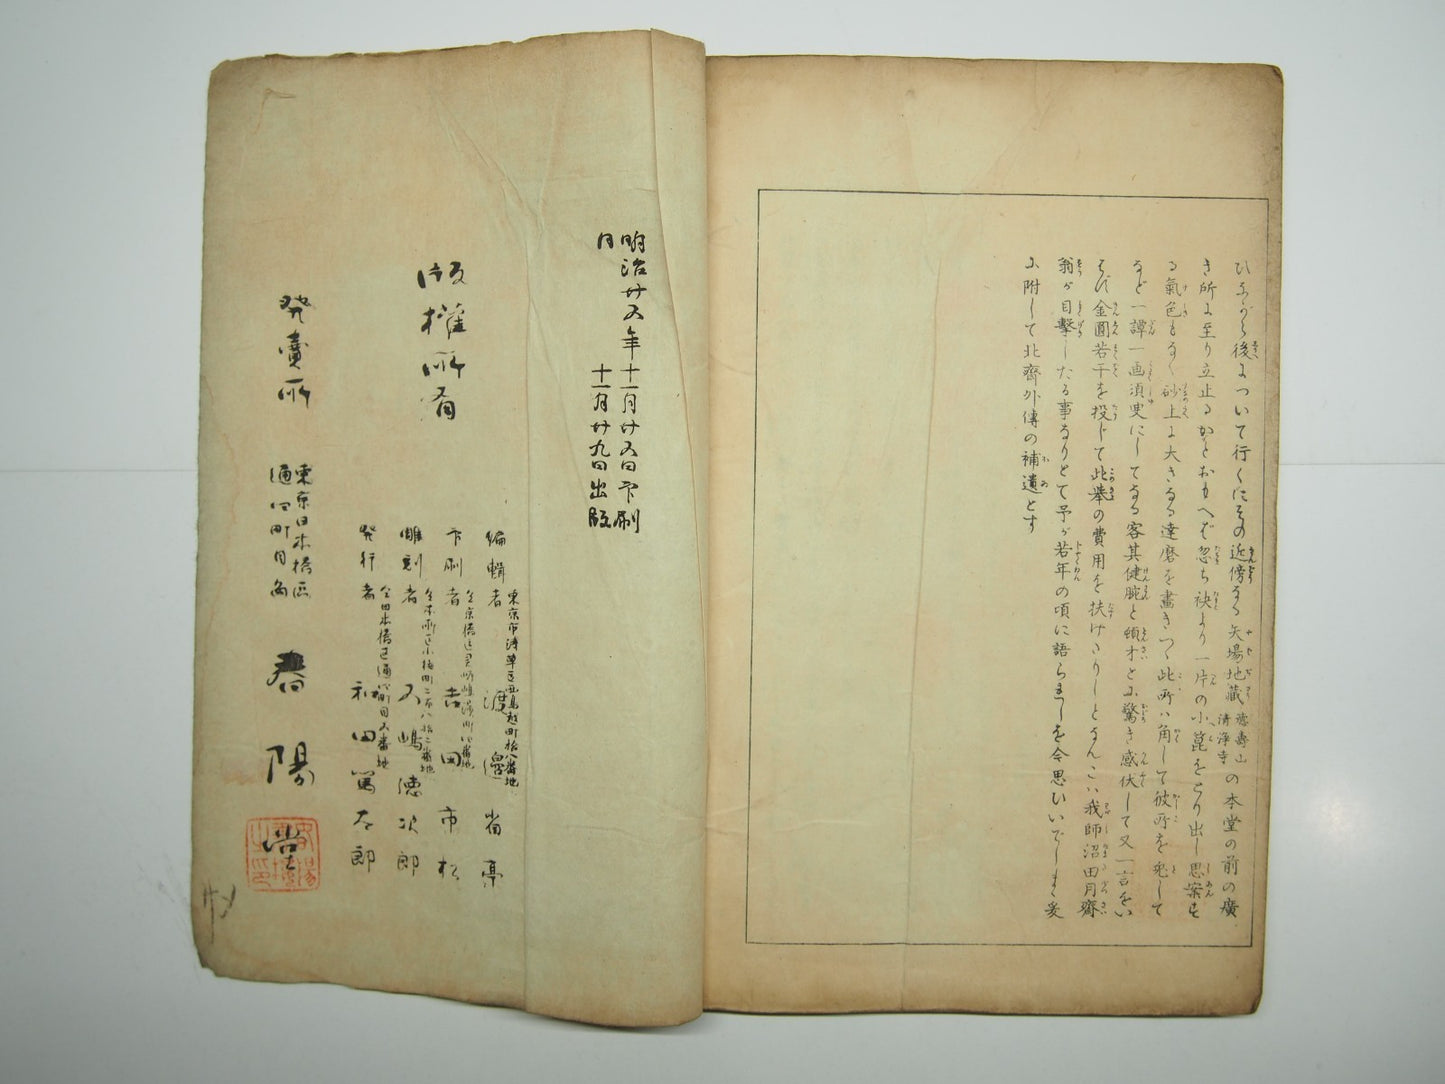 ひながら後について行くにその近傍なる矢場地藏徳壽山清淨寺の本堂の前の廣
き所に至り立止るかとおもへば忽ち袂より一片の小箆をとり出し思案す
る氣色もなく砂上に大きなる達磨を畫きつゝ此所ハ角して彼所を兎して
など一譚一画須臾にしてなる客其健腕と頓才とに驚き感伏して又一言をい
はず金圓若干を投じて此挙の費用を扶けさりしとなんこハ我師沼田月齋
翁が目撃したる事なりとて予が若年の頃に語られしを今思ひいでしまゝ爰
に附して北齋外傳の補遺とす
明治廿五年十一月廿五日印刷
月 十一月廿九日出版
版権所有
編輯者 東京市浅草区西鳥越町拾八番地 渡邊省亭
印刷者 吉田市松
雕刻者 五嶋徳次郎
発行者 和田篤太郎
発賣所 東京日本橋区通四町目角 春陽堂